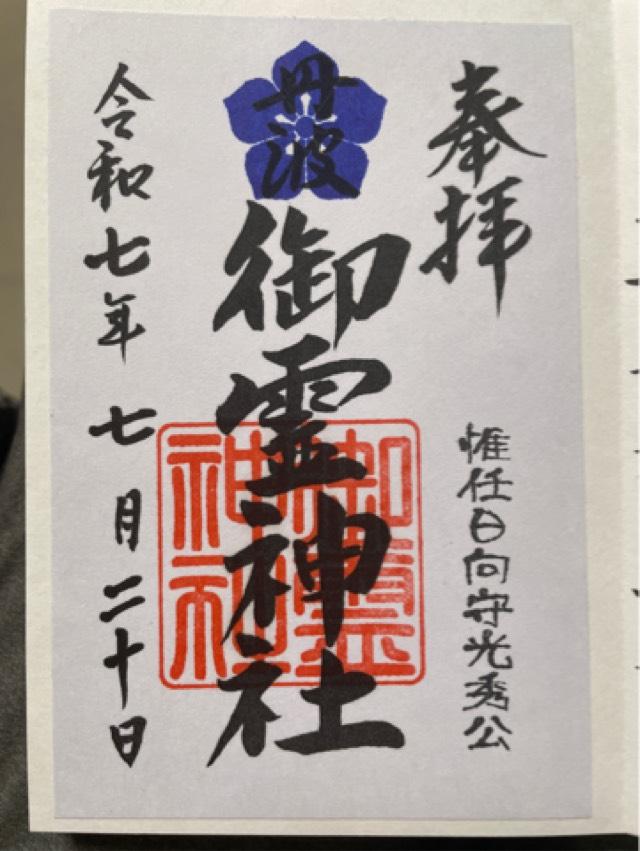 奉拝
惟任日向守光秀公
丹波
御霊神社
御霊
神社
令和七年七月二十日